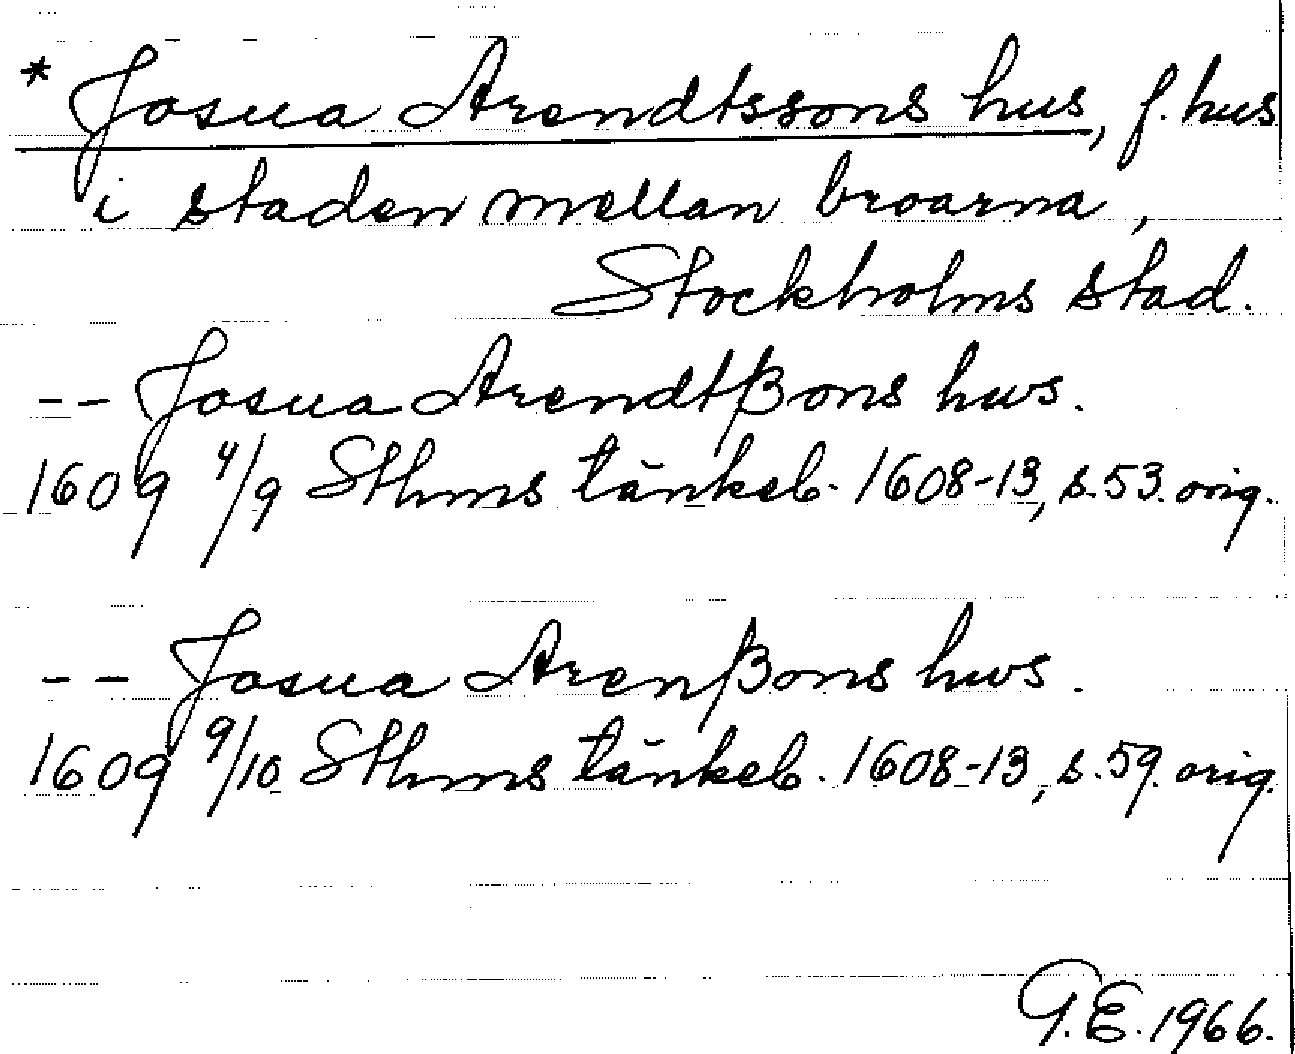 * Josua Arendtssons hus, f. hus
i staden mellan broarna,
Stockholms stad.
-- Josua Arendtßons hws.
1609 4/9 Sthms tänkeb. 1608-13, s. 53. orig.
-- Josua Arenßons hws.
1609 9/10 Sthms tänkeb. 1608-13, s. 59. orig.
G.E. 1966.